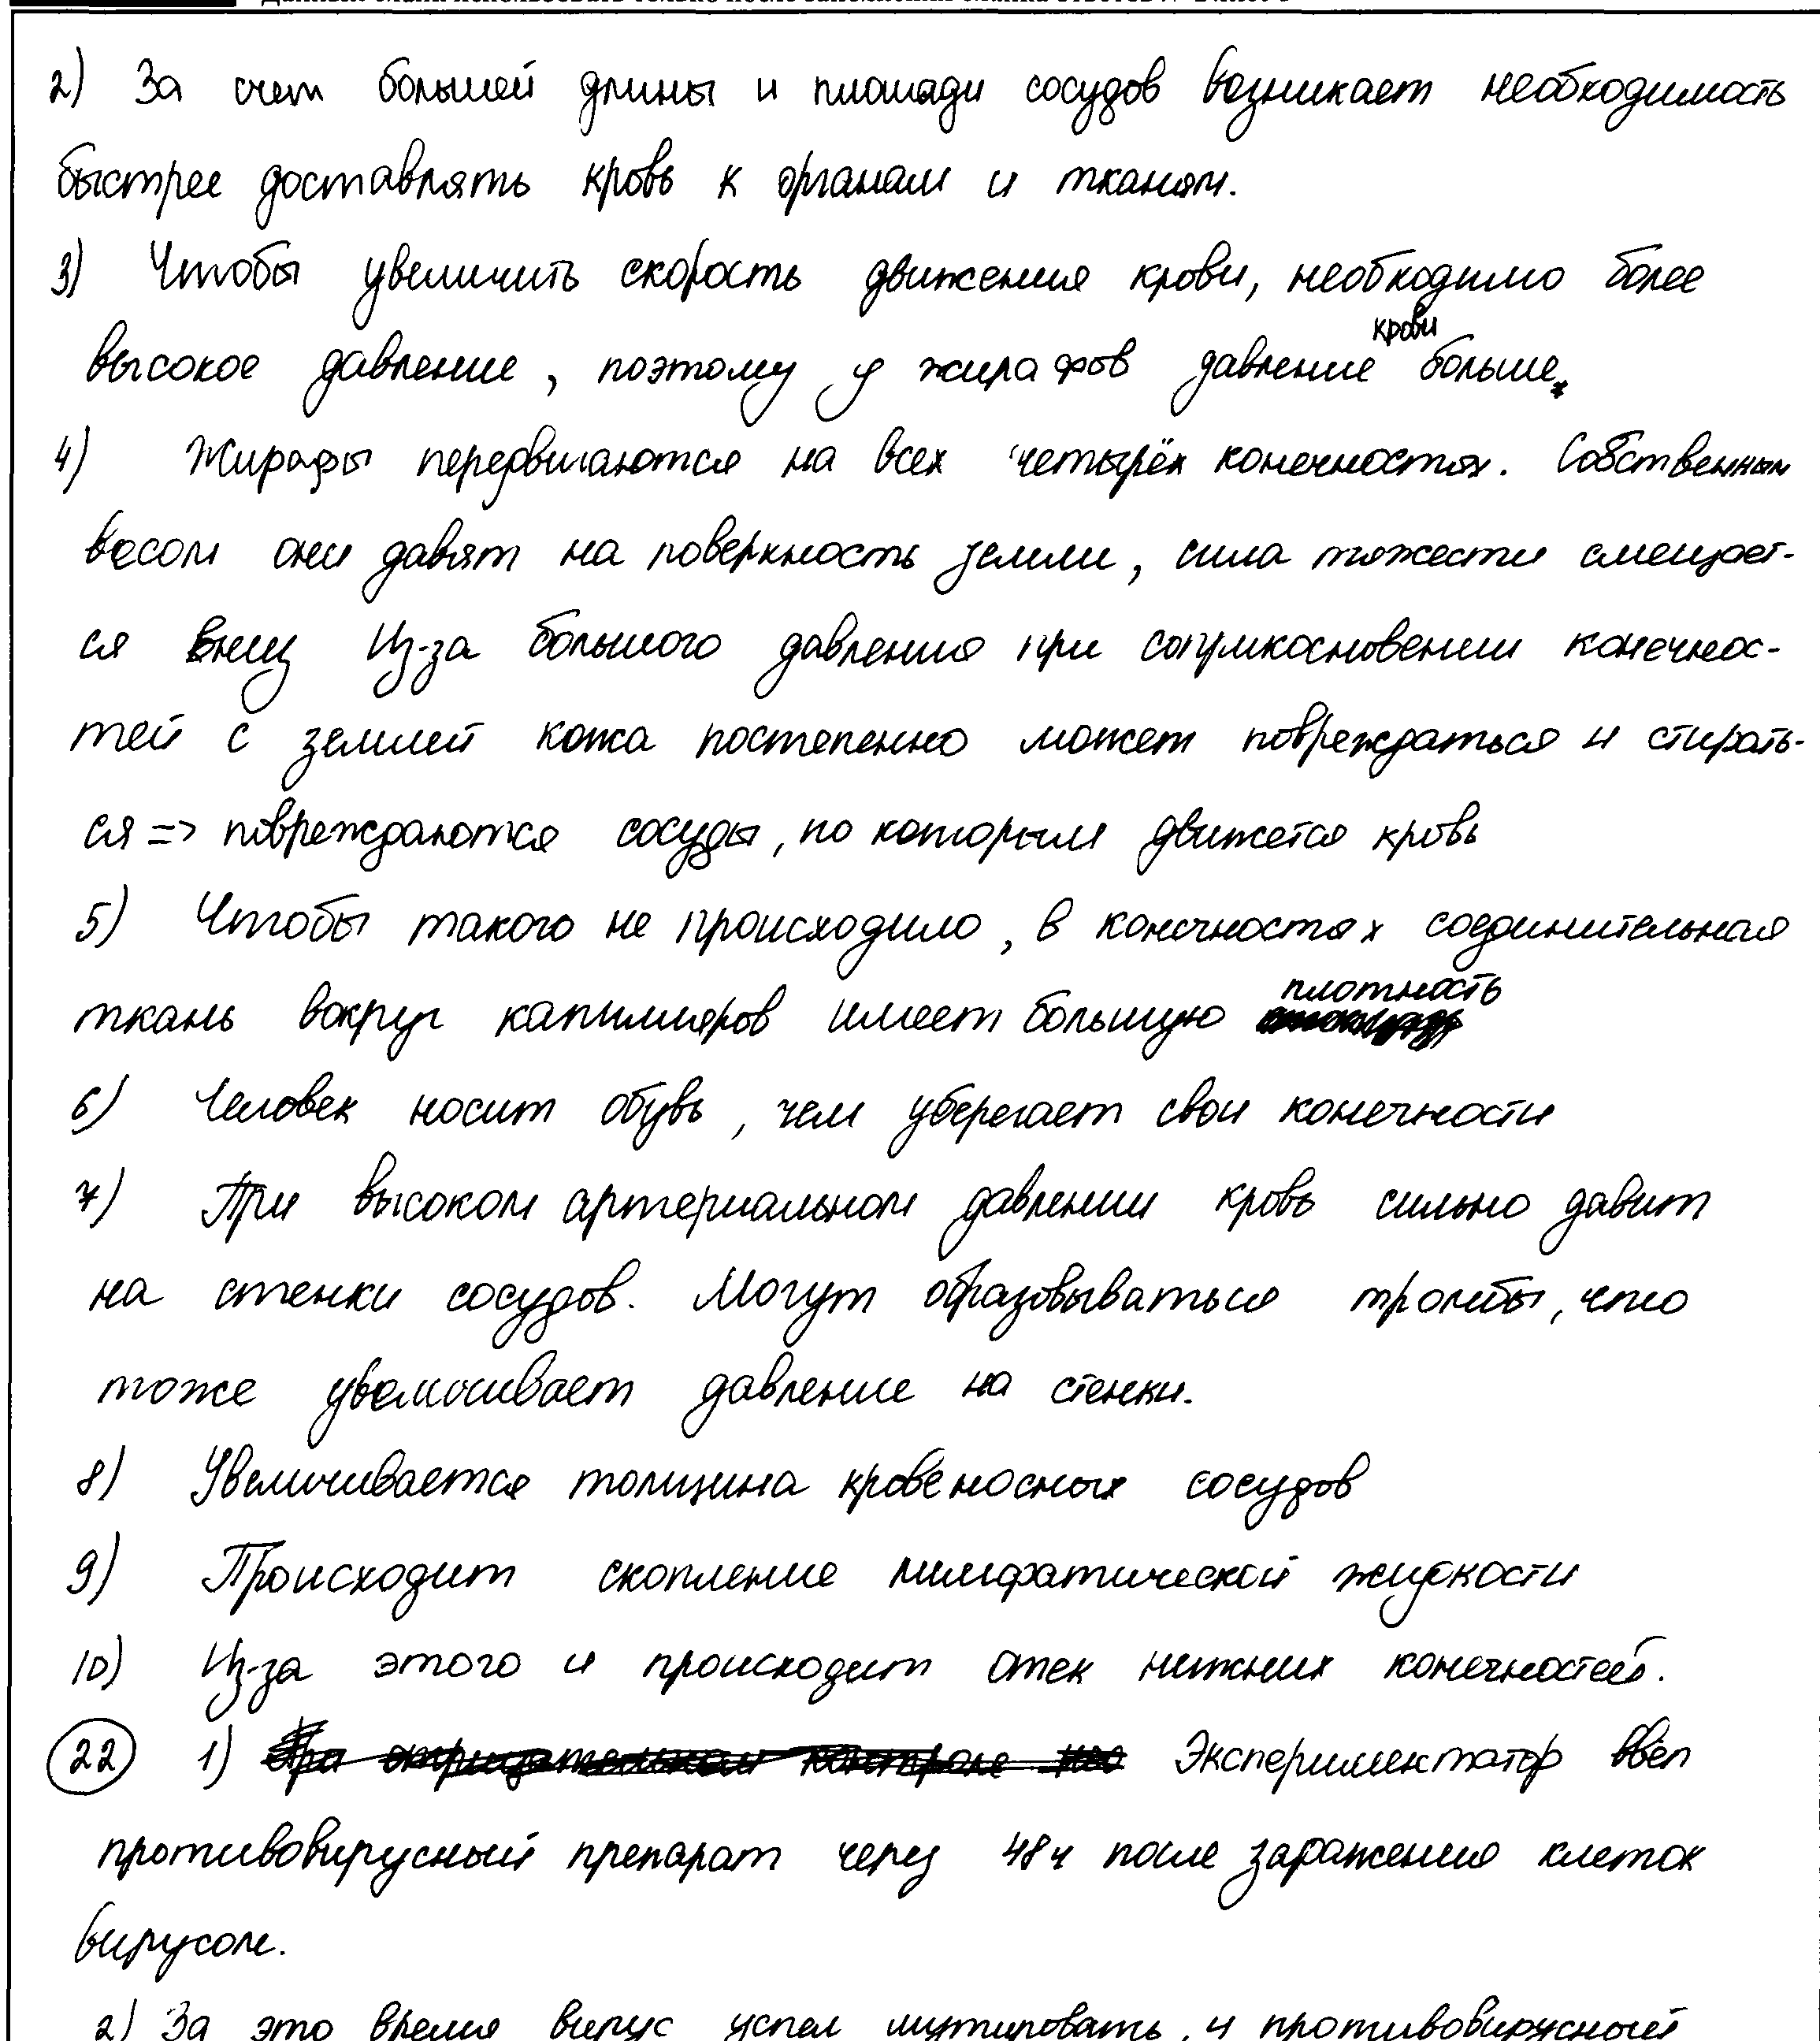 2) За счет большей длины и площади сосудов возникает необходимость
быстрее доставлять кровь к органам и тканям.
3) Чтобы увеличить скорость движения крови, необходимо более
крови
высокое давление, поэтому у жирафов давление больше.
4) Жирафы передвигаются на всех четырёх конечностях. Собственным
весом они давят на поверхность земли, сила тяжести смещает-
ся вниз Из-за большого давления при соприкосновении конечнос-
тей с землей кожа постепенно может повреждаться и стирать-
ся => повреждаются сосуды, по которым движется кровь
5) Чтобы такого не происходило, в конечностях соединительная
плотность
ткань вокруг капилляров имеет большую
6) Человек носит обувь, чем уберегает свои конечности
7) При высоком артериальном давлении кровь сильно давит
на стенки сосудов. Могут образовываться тромбы, что
тоже увеличивает давление на стенки.
8) Увеличивается толщина кровеносных сосудов
9) Происходит скопление лимфатической жидкости
10) Из-за этого и происходит отек нижних конечностей.
22 1) Экспериментатор ввёл
противовирусный препарат через 48ч после заражения клеток
вирусом.
2) За это время вирус успел мутировать, и противовирусный